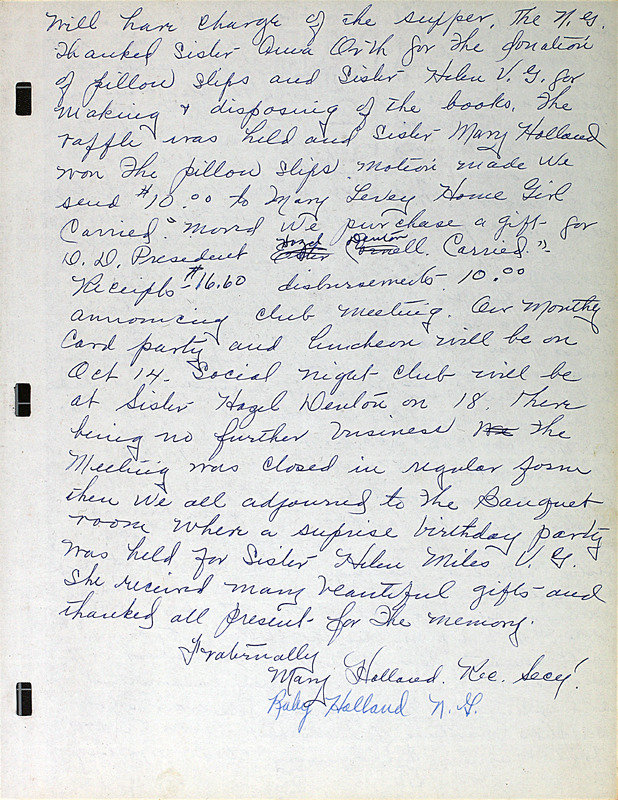 Will have charge of the supper. The N.G.
Thanked Sister Orth for the donation
of pillow slips and Sister Helen V. G. for
making & disposing of the books. The
raffle was held and Sister Mary Holland
won the pillow slips. Motion made We
send $10.00 to Mary Levey Home Girl
Carried." Moved We purchase a gift for
D. D. President Hazel Denton. Carried."
Receipts - $16.60 disbursements. 10.00
announcing club meeting. Our Monthly
Card party and luncheon will be on
Oct 14. Social night club will be
at Sister Hazel Denton on 18. There
being no further business the
Meeting was closed in regular form
then We all adjourned to the Banquet
room where a suprise birthday party
was held for Sister Helen Miles V. G.
She received many beautiful gifts and
thanked all present for the memory.
Fraternally
Mary Holland. Rec. Secy.
Ruby Holland N. G.